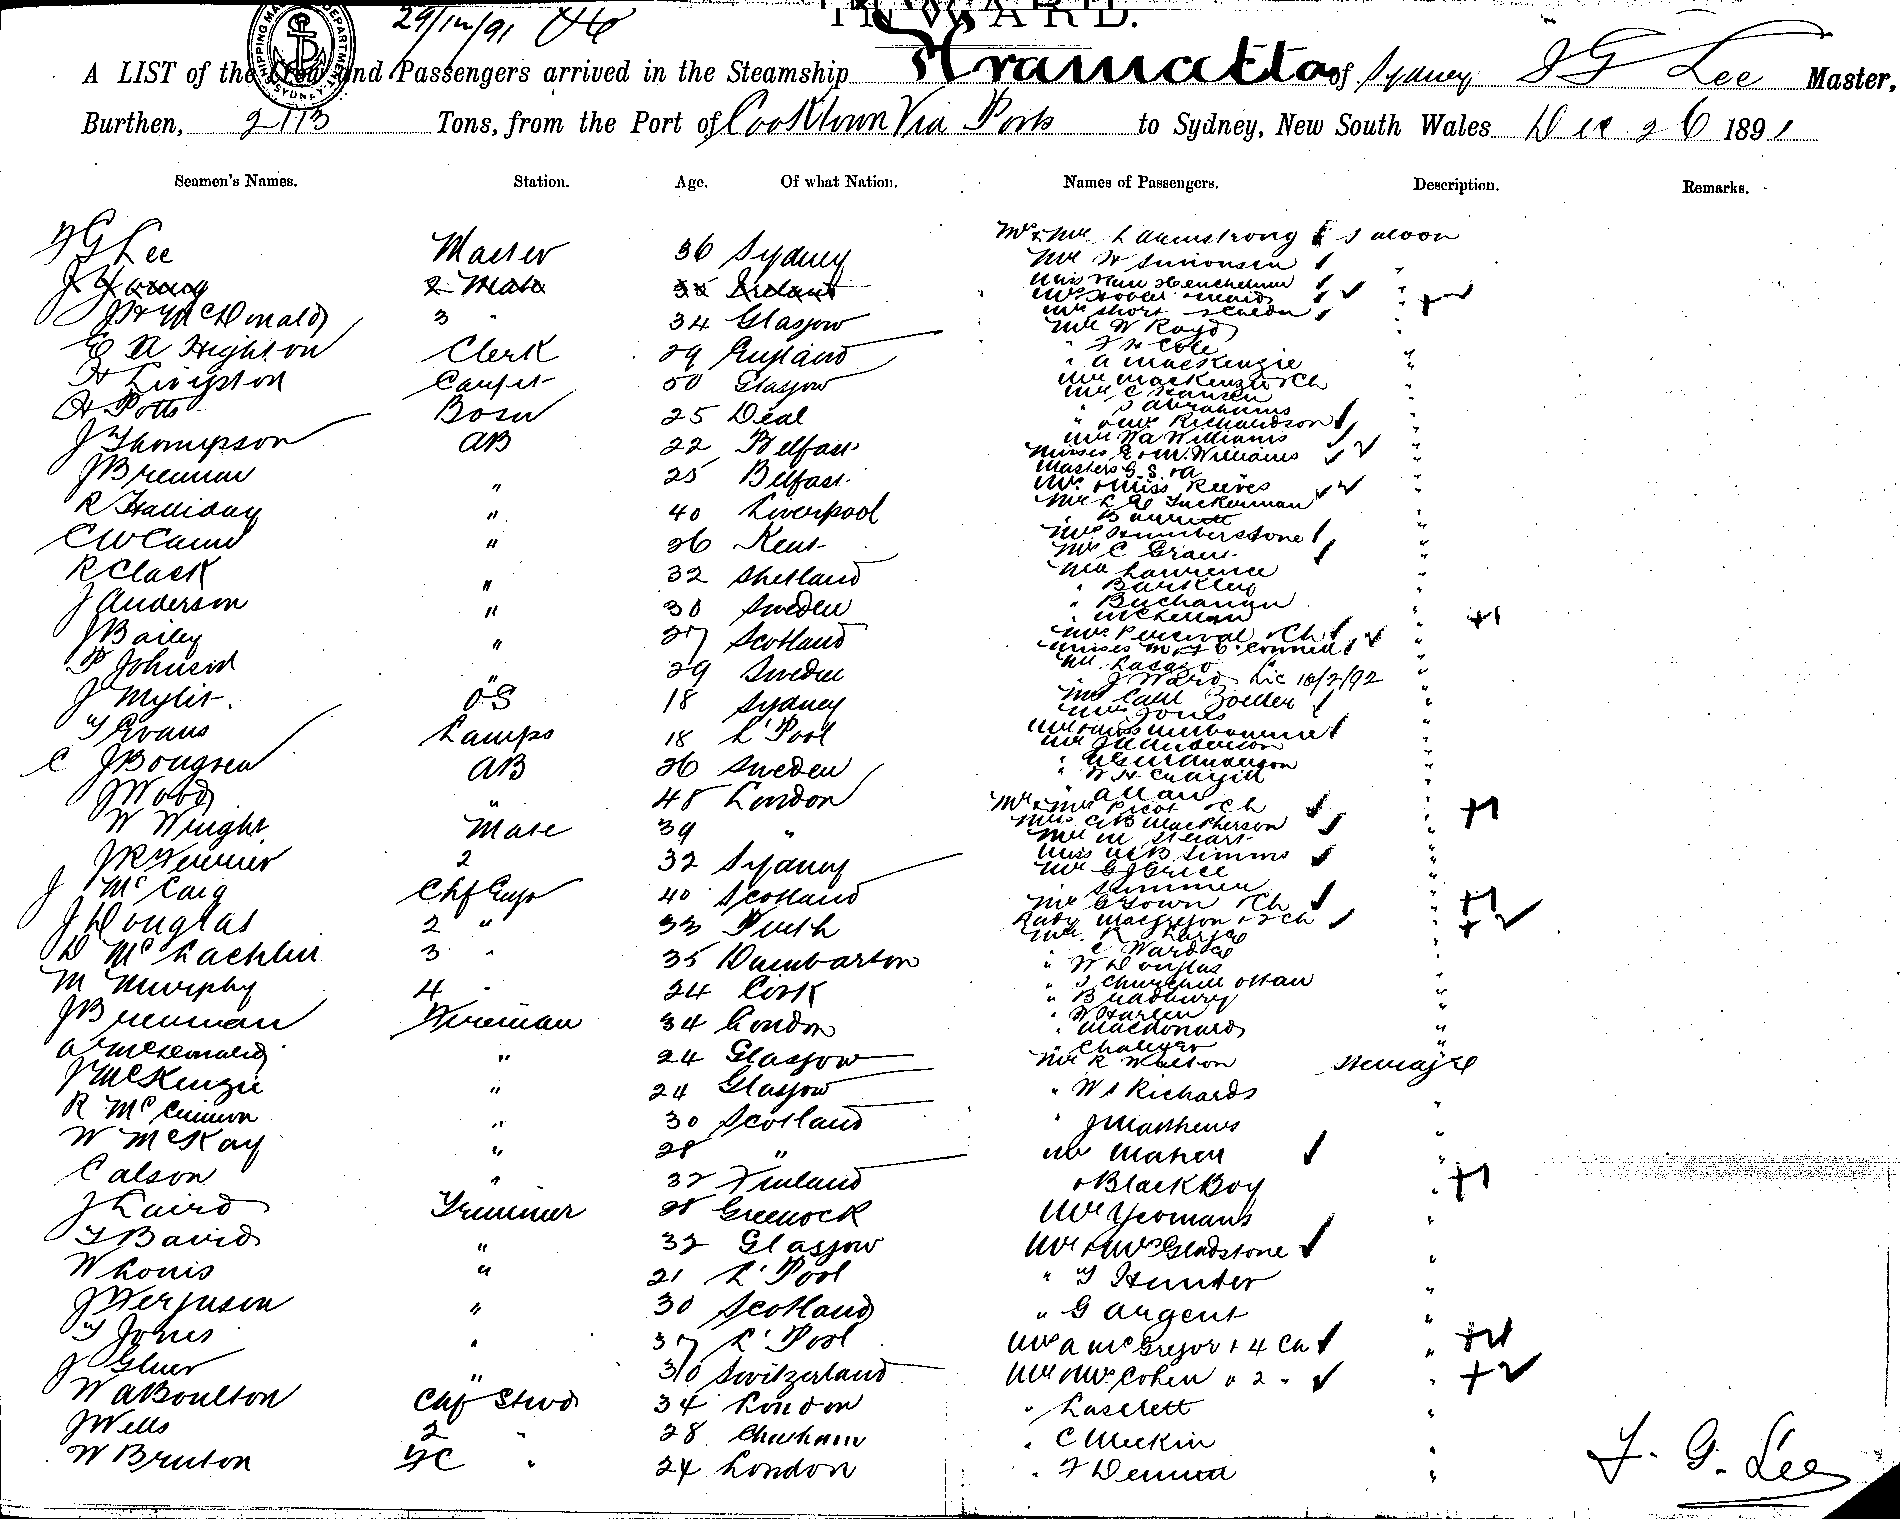 INWARD.
29/12/91
SHIPPING MASTER DEPARTMENT SYDNEY
A LIST of the Crew and Passengers arrived in the Steamship Arramatta of Sydney J G Lee Master,
Burthen, 2113 Tons, from the Port of Cooktown Via Ports to Sydney, New South Wales Dec 26 1891
Seamen's Names. Station. Age. Of what Nation. Names of Passengers. Description. Remarks.
J G Lee Master 36 Sydney
J Young 2 Mate Ireland
McDonald 3 " 34 Glasgow
E A Highton Clerk 29 England
H Livingston Carptr 50 Glasgow
H Potts Bosn 25 Deal
J Thompson AB 22 Belfast
J Brennan " 25 Belfast
R Halliday " 40 Liverpool
C W Cann " 26 Kent
R Clack " 32 Shetland
J Anderson " 30 Sweden
J Bailey " 27 Scotland
P Johnson " 29 Sweden
J Mylit OS 18 Sydney
T Evans Lamps 18 L'Pool
C J Bougren AB 26 Sweden
J Wood " 48 London
W Wright Mate 39 "
J R 2 32 Sydney
J McCaig Chf Engr 40 Scotland
J Douglas 2 " 33 Perth
D McLachlan 3 " 35 Dumbarton
M Murphy 4 " 24 Cork
J Brennan Fireman 34 London
A McDonald " 24 Glasgow
J McKenzie " 24 Glasgow
R McCunnon " 30 Scotland
W McKay " 28 "
C alson " 32 Finland
J Laird Trimmer 28 Greenock
T David " 32 Glasgow
W Louis " 21 L'Pool
J Ferguson " 30 Scotland
T Jones " 37 L'Pool
J Gluer " 30 Switzerland
W A Boulton Chf Stwd 34 London
J Wells 2 " 28 Chatham
W Bruton FC " 24 London
Mr & Mrs L Armstrong Saloon
Mr W Simonsen "
Miss Henchelman "
"
Mrs Short "
Mr W Boyd "
" F H Cole "
" A MacKenzie "
Mrs MacKenzie & Ch "
Mr C Hansen "
" S Abrahams "
" & Mrs Richardson "
Mr Wa Williams "
Misses E & M Williams "
Masters G. S. & A "
Mr & Miss Reeves "
Mr L G Tuckerman "
" Bennett "
Mrs Humberstone "
Mr C Grant "
Mr Lawrence "
" Barkley "
" Buchanan "
" McLennan "
Mrs Percival & Ch "
Misses M & C "
Mr "
" J Ward Lic 10/2/92
Mrs Capt Zoeller "
Mrs Jones "
"
Mr J M Anderson "
" Anderson "
" W H Cuargill "
" Allan "
Mr & Mrs Picot & Ch "
Mrs C B MacPherson "
Mr M Stuart "
Miss M B Simms "
Mr G J Grice "
" Skinner "
Mrs Gtown & Ch "
Lady MacGregor & 2 Ch "
Mr "
" C Ward "
" W Douglas "
" S Churchill & Man "
" Bradbury "
" W Harlen "
" Macdonald "
" Challger "
Mr R Walton Steerage
" W S Richards "
" J Matthews "
Mrs Maher "
& Black Boy "
Mr Yeomans "
Mr & Mrs Gladstone "
" T Hunter "
" G Argent "
Mrs A McGregor & 4 Ch "
Mr & Mrs Cohen " 2 " "
" Laslett "
" C Meekin "
" F Dennett "
J. G. Lee